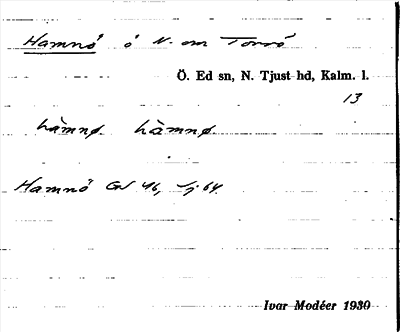 Hamnö ö N. om Torrö
Ö. Ed sn, N. Tjust hd, Kalm. l.
13
hàmnø hàmnø
Hamnö GV 46, Jj 64
Ivar Modéer 1930